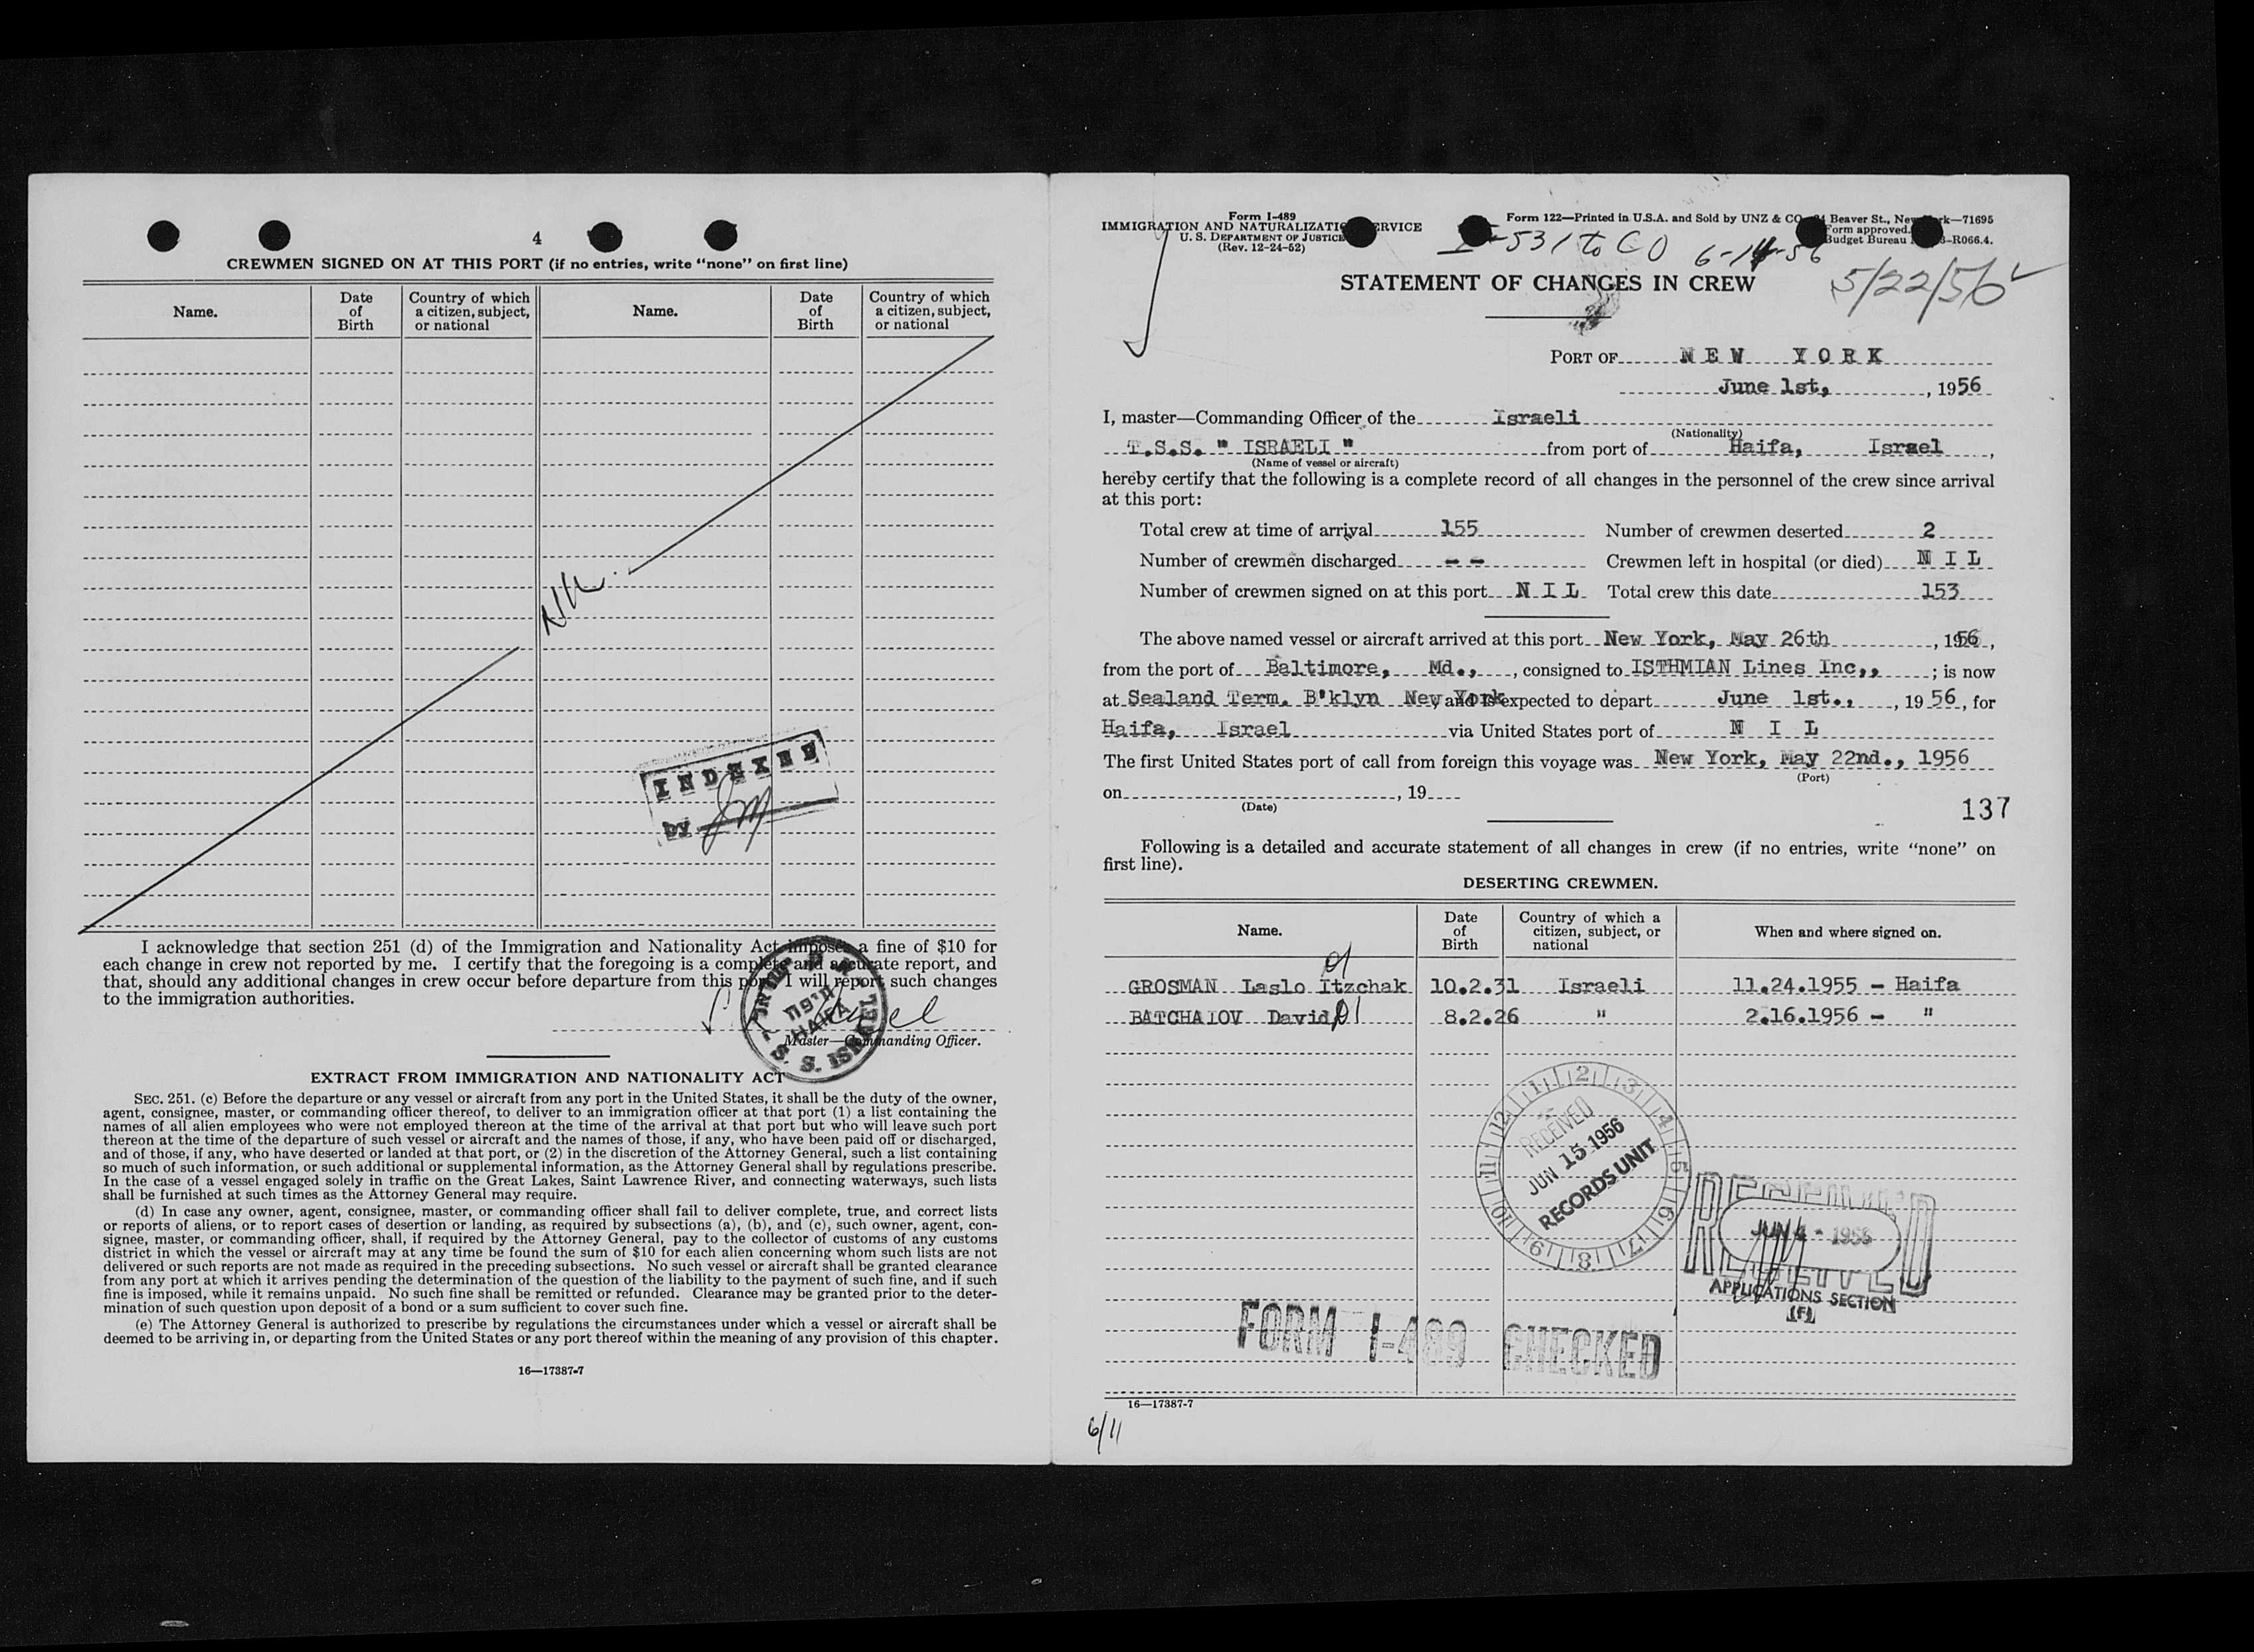 4
CREWMEN SIGNED ON AT THIS PORT (if no entries, write “none” on first line)
Name. Date of Birth Country of which a citizen, subject, or national Name. Date of Birth Country of which a citizen, subject, or national
Nil.
INDEXED
by
I acknowledge that section 251 (d) of the Immigration and Nationality Act imposes a fine of $10 for
each change in crew not reported by me. I certify that the foregoing is a complete and accurate report, and
that, should any additional changes in crew occur before departure from this port I will report such changes
to the immigration authorities.
חיפה
HAIFA
S. S. ISRAEL
Master—Commanding Officer.
EXTRACT FROM IMMIGRATION AND NATIONALITY ACT
SEC. 251. (c) Before the departure or any vessel or aircraft from any port in the United States, it shall be the duty of the owner,
agent, consignee, master, or commanding officer thereof, to deliver to an immigration officer at that port (1) a list containing the
names of all alien employees who were not employed thereon at the time of the arrival at that port but who will leave such port
thereon at the time of the departure of such vessel or aircraft and the names of those, if any, who have been paid off or discharged,
and of those, if any, who have deserted or landed at that port, or (2) in the discretion of the Attorney General, such a list containing
so much of such information, or such additional or supplemental information, as the Attorney General shall by regulations prescribe.
In the case of a vessel engaged solely in traffic on the Great Lakes, Saint Lawrence River, and connecting waterways, such lists
shall be furnished at such times as the Attorney General may require.
(d) In case any owner, agent, consignee, master, or commanding officer shall fail to deliver complete, true, and correct lists
or reports of aliens, or to report cases of desertion or landing, as required by subsections (a), (b), and (c), such owner, agent, con-
signee, master, or commanding officer, shall, if required by the Attorney General, pay to the collector of customs of any customs
district in which the vessel or aircraft may at any time be found the sum of $10 for each alien concerning whom such lists are not
delivered or such reports are not made as required in the preceding subsections. No such vessel or aircraft shall be granted clearance
from any port at which it arrives pending the determination of the question of the liability to the payment of such fine, and if such
fine is imposed, while it remains unpaid. No such fine shall be remitted or refunded. Clearance may be granted prior to the deter-
mination of such question upon deposit of a bond or a sum sufficient to cover such fine.
(e) The Attorney General is authorized to prescribe by regulations the circumstances under which a vessel or aircraft shall be
deemed to be arriving in, or departing from the United States or any port thereof within the meaning of any provision of this chapter.
16—17387-7
Form I-489
IMMIGRATION AND NATURALIZATION SERVICE
U. S. DEPARTMENT OF JUSTICE
(Rev. 12-24-52)
Form 122—Printed in U.S.A. and Sold by UNZ & CO Beaver St., New York—71695
Form approved.
Budget Bureau -R066.4.
I-531 to CO 6-14-56
5/22/56
STATEMENT OF CHANGES IN CREW
PORT OF NEW YORK
June 1st, , 1956
I, master—Commanding Officer of the Israeli
(Nationality)
T.S.S. " ISRAELI " from port of Haifa, Israel ,
(Name of vessel or aircraft)
hereby certify that the following is a complete record of all changes in the personnel of the crew since arrival
at this port:
Total crew at time of arrival 155 Number of crewmen deserted 2
Number of crewmen discharged - - Crewmen left in hospital (or died) N I L
Number of crewmen signed on at this port N I L Total crew this date 153
The above named vessel or aircraft arrived at this port New York, May 26th , 1956,
from the port of Baltimore, Md., , consigned to ISTHMIAN Lines Inc,, ; is now
at Sealand Term. B'klyn New York, and is expected to depart June 1st., , 19 56, for
Haifa, Israel via United States port of N I L
The first United States port of call from foreign this voyage was New York, May 22nd., 1956
(Port)
on , 19
(Date)
137
Following is a detailed and accurate statement of all changes in crew (if no entries, write “none” on
first line).
DESERTING CREWMEN.
Name. Date of Birth Country of which a citizen, subject, or national When and where signed on.
GROSMAN Laslo Itzchak 10.2.31 Israeli 11.24.1955 - Haifa
BATCHAIOV David 8.2.26 " 2.16.1956 - "
1 2 3 4 5 6 7 8 9 10 11 12
RECEIVED
JUN 15 1956
RECORDS UNIT
RECEIVED
JUN 4 - 1956
APPLICATIONS SECTION
(F)
FORM I-489 CHECKED
16—17387-7
6/11